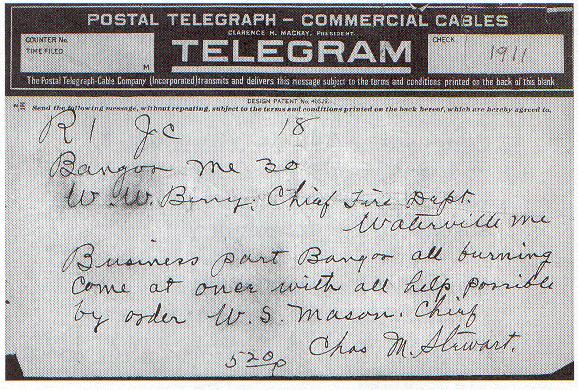 POSTAL TELEGRAPH – COMMERCIAL CABLES
CLARENCE H. MACKAY, PRESIDENT.
COUNTER No.
TIME FILED
M
TELEGRAM
CHECK
1911
The Postal Telegraph-Cable Company (Incorporated) transmits and delivers this message subject to the terms and conditions printed on the back of this blank.
DESIGN PATENT No.
Send the following message, without repeating, subject to the terms and conditions printed on the back hereof, which are hereby agreed to.
R 1 Jc 18
Bangor Me 30
W. W. Berry, Chief Fire Dept.
Waterville Me
Business part Bangor all burning
Come at once with all help possible
by order W. S. Mason. Chief
Chas M. Stewart.
520p